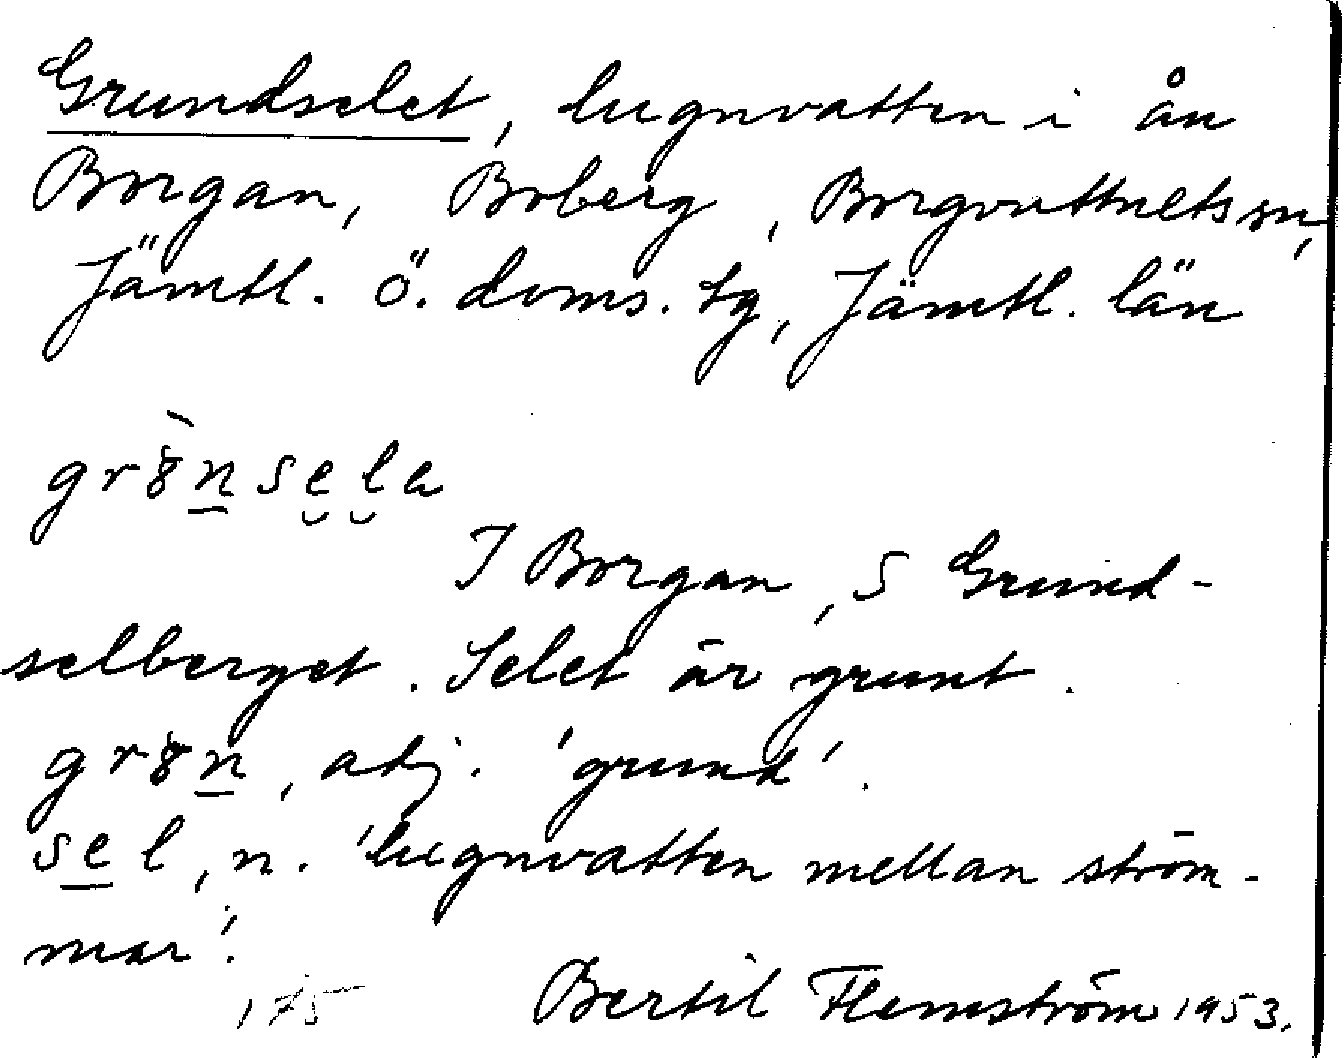 Grundselet, lugnvatten i ån
Borgan, Boberg, Borgvattnets sn,
Jämtl. ö. doms. tg, Jämtl. län
grȣ̀n sela
I Borgan, S Grund-
selberget. Selet är grunt.
grȣn, adj. 'grund'.
sel, n. 'lugnvatten mellan ström-
mar'.
175 Bertil Flemström 1953.